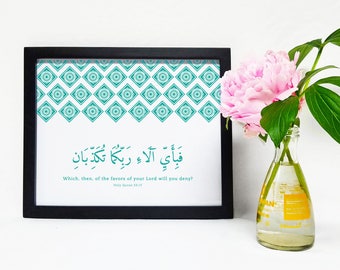 فَبِأَيِّ آلَاءِ رَبِّكُمَا تُكَذِّبَانِ
Which, then, of the favors of your Lord will you deny?